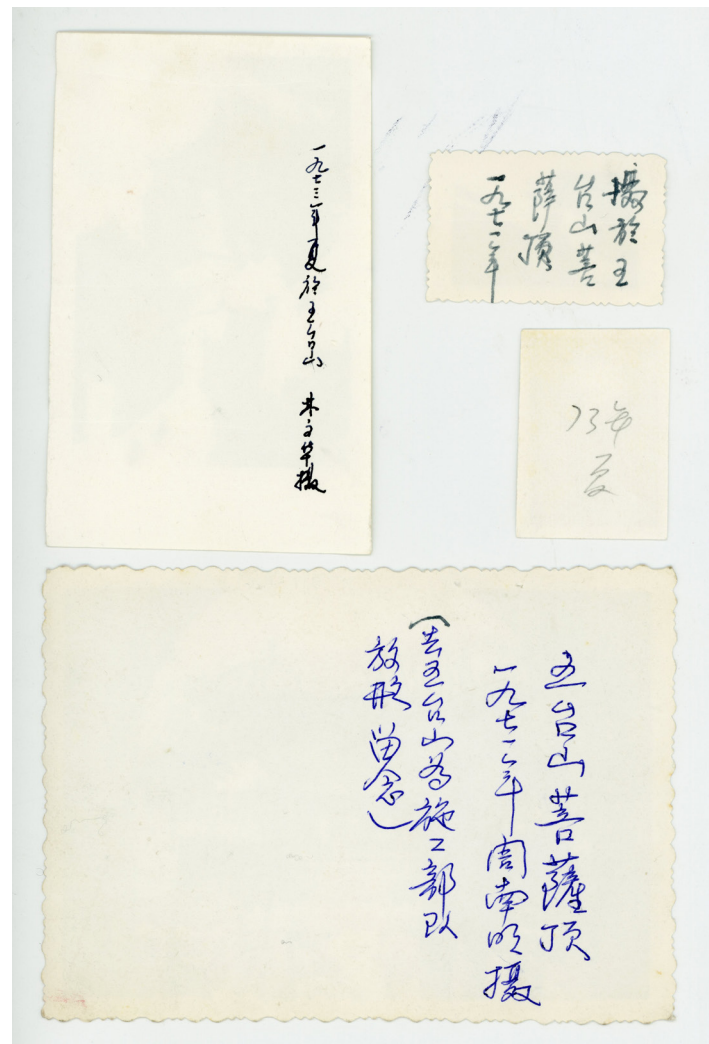 一九七三年夏於五台山 文华摄
摄於五
台山菩
薩顶
一九七二年
73年
夏
五台山菩薩顶
一九七二年周南明摄
(去五台山为施工部队
放映留念)